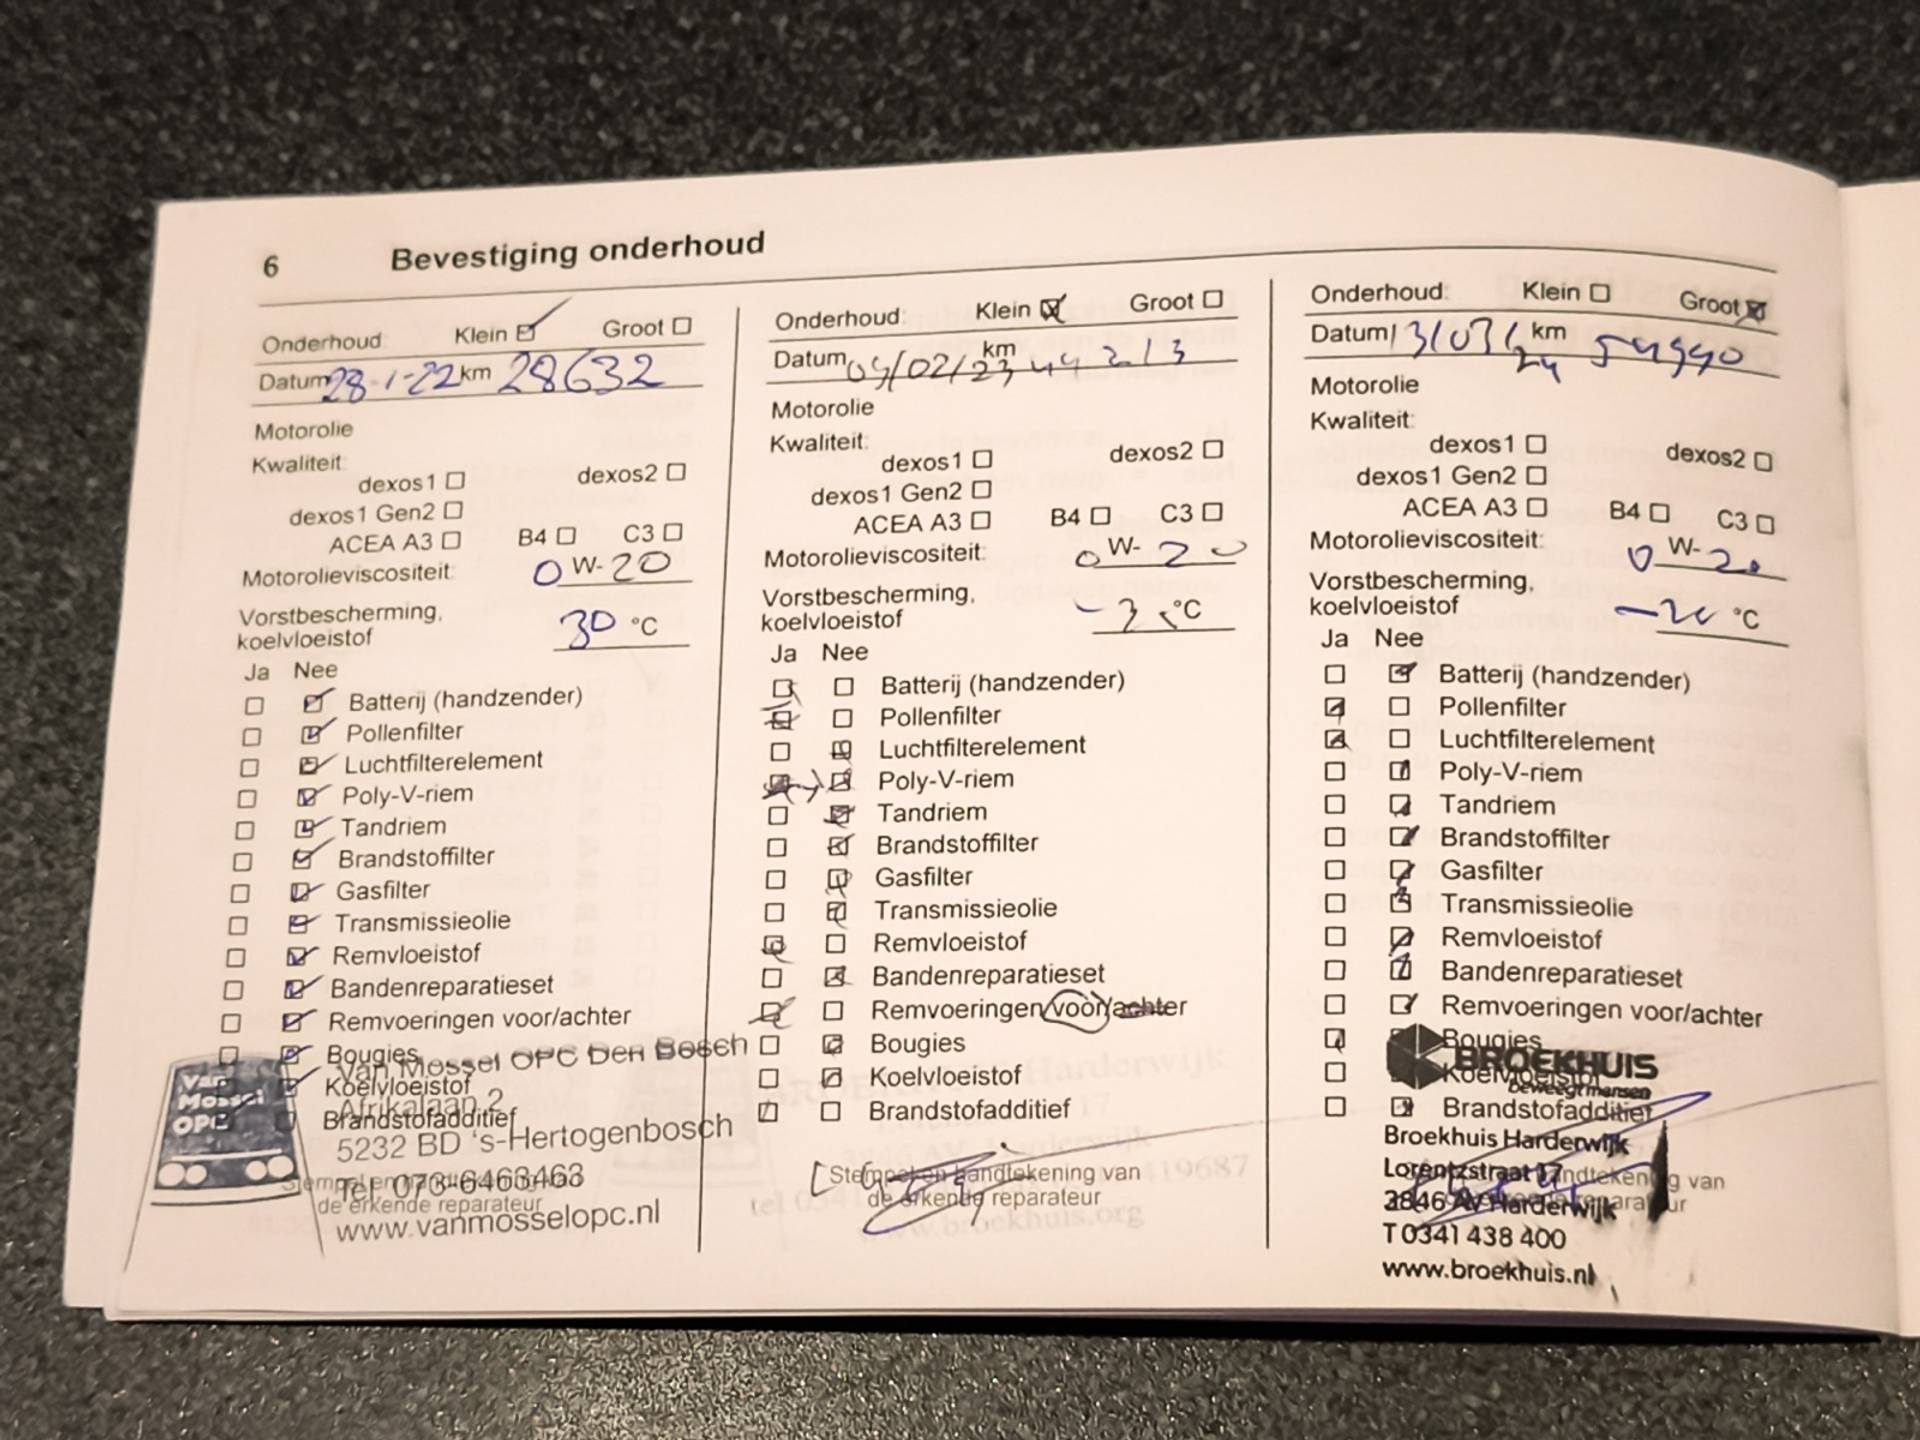 6 Bevestiging onderhoud
Onderhoud: Klein Groot
Datum 28-1-22 km 28632
Motorolie
Kwaliteit:
dexos1 dexos2
dexos1 Gen2
ACEA A3 B4 C3
Motorolieviscositeit: 0 W- 20
Vorstbescherming,
koelvloeistof 30 °C
Ja Nee
Batterij (handzender)
Pollenfilter
Luchtfilterelement
Poly-V-riem
Tandriem
Brandstoffilter
Gasfilter
Transmissieolie
Remvloeistof
Bandenreparatieset
Remvoeringen voor/achter
Bougies
Koelvloeistof
Brandstofadditief
Van Mossel OPC
Van Mossel OPC Den Bosch
Afrikalaan 2
5232 BD 's-Hertogenbosch
Tel. 073-6463463
de erkende reparateur
www.vanmosselopc.nl
Onderhoud: Klein Groot
Datum 09/02/23 km 44213
Motorolie
Kwaliteit:
dexos1 dexos2
dexos1 Gen2
ACEA A3 B4 C3
Motorolieviscositeit: 0 W- 20
Vorstbescherming,
koelvloeistof °C
Ja Nee
Batterij (handzender)
Pollenfilter
Luchtfilterelement
Poly-V-riem
Tandriem
Brandstoffilter
Gasfilter
Transmissieolie
Remvloeistof
Bandenreparatieset
Remvoeringen voor/achter
Bougies
Koelvloeistof
Brandstofadditief
Stempel en handtekening van
de erkende reparateur
Onderhoud: Klein Groot
Datum km
Motorolie
Kwaliteit:
dexos1 dexos2
dexos1 Gen2
ACEA A3 B4 C3
Motorolieviscositeit: 0 W- 20
Vorstbescherming,
koelvloeistof °C
Ja Nee
Batterij (handzender)
Pollenfilter
Luchtfilterelement
Poly-V-riem
Tandriem
Brandstoffilter
Gasfilter
Transmissieolie
Remvloeistof
Bandenreparatieset
Remvoeringen voor/achter
Bougies
BROEKHUIS
Koelvloeistof
beweegt mensen
Brandstofadditief
Broekhuis Harderwijk
Lorentzstraat 17
3846 AV Harderwijk
T 0341 438 400
www.broekhuis.nl